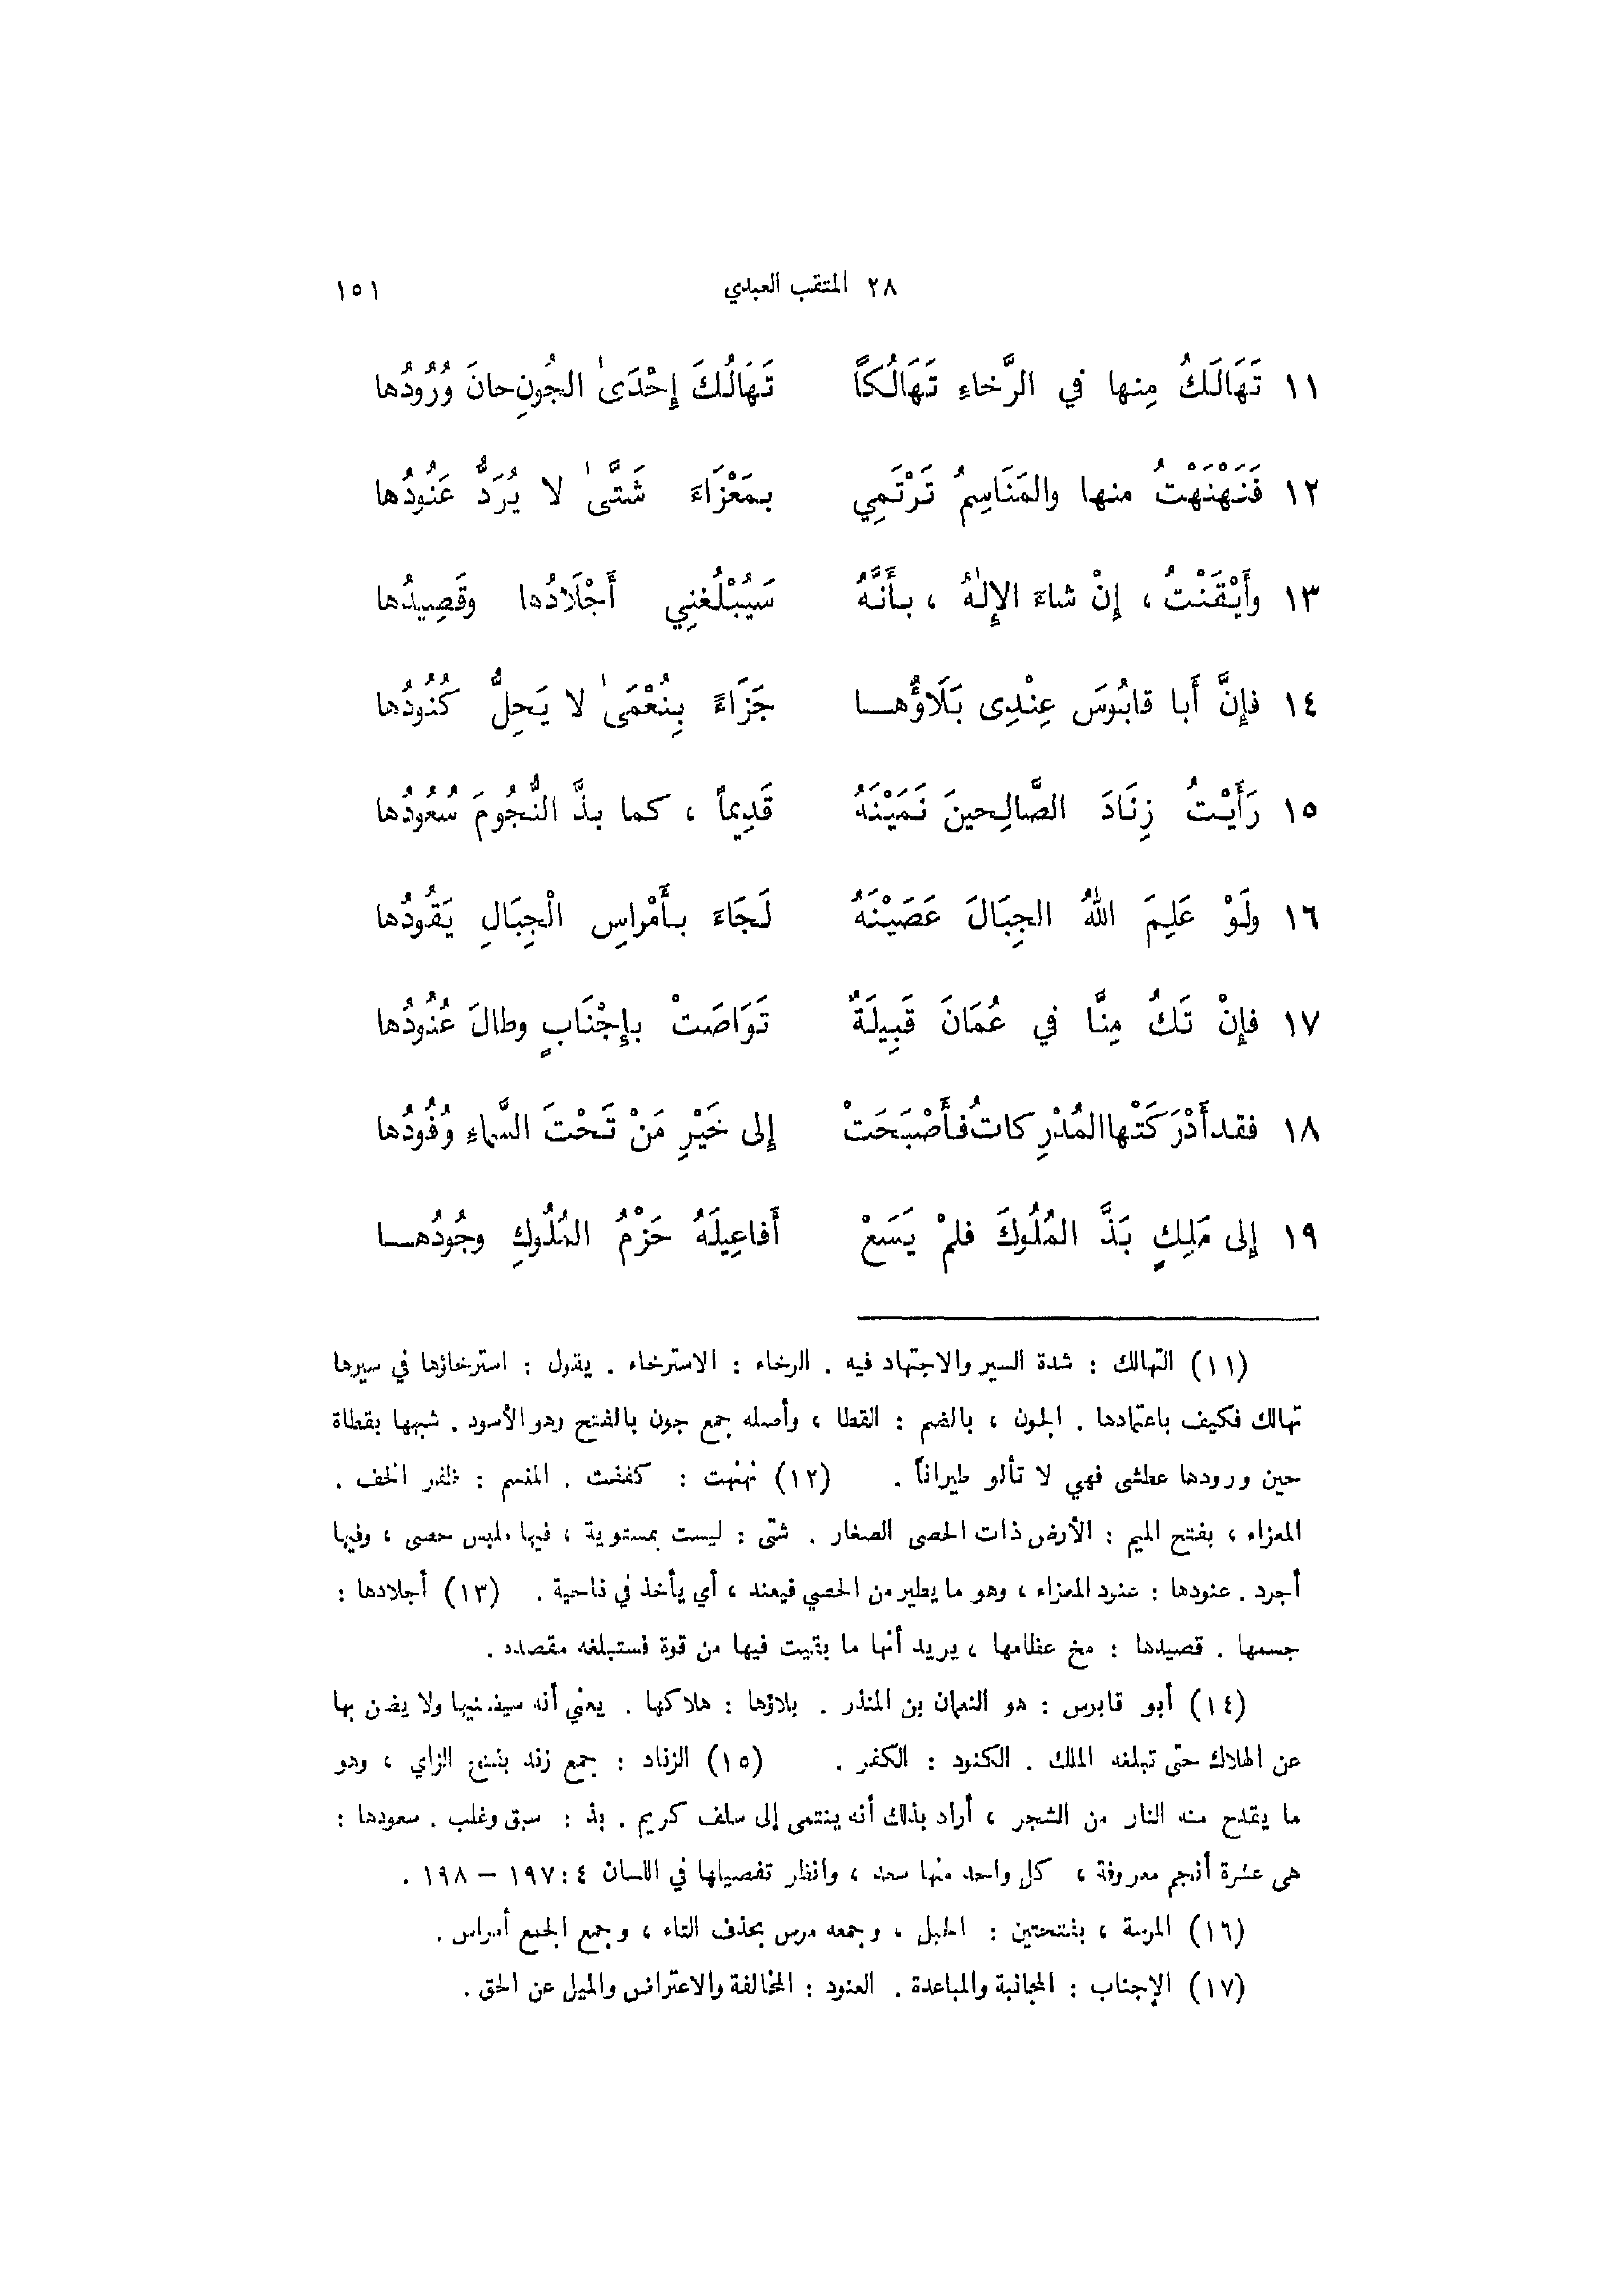 ٢٨ المثقب العبدي ١٥١
١١ تَهَالَكُ مِنها في الرَّخاءِ تَهَالُكاً تَهَالُكَ إِحْدَىٰ الجُونِ حانَ وُرُودُها
١٢ فَنَهْنَهْتُ منها والمَنَاسِمُ تَرْتَمِي بمَعْزَاءَ شَتَّىٰ لا يُرَدُّ عَنُودُها
١٣ وأَيْقَنْتُ ، إِنْ شاءَ الإِلٰهُ ، بأَنَّهُ سَيُبْلُغنِي أَجْلَادُها وقَصِيدُها
١٤ فإِنَّ أَبا قابُوسَ عِنْدِى بَلَاؤُها جَزَاءً بِنُعْمَىٰ لا يَحِلُّ كُنُودُها
١٥ رَأَيْتُ زِنَادَ الصَّالِحينَ نَمَيْنَهُ قَدِيماً ، كما بذَّ النُّجُومَ سُعُودُها
١٦ ولَوْ عَلِمَ اللهُ الجِبَالَ عَصَيْنَهُ لَجَاءَ بأَمْراسِ الْجِبَالِ يَقُودُها
١٧ فإِنْ تَكُ مِنَّا في عُمَانَ قَبِيلَةٌ تَوَاصَتْ بإِجْنَابٍ وطالَ عُنُودُها
١٨ فقد أَدْرَكَتْها المُدْرِكاتُ فأَصْبَحَتْ إلى خَيْرِ مَنْ تَحْتَ السَّماءِ وُفُودُها
١٩ إلى مَلِكٍ بَذَّ المُلُوكَ فلمْ يَسَعْ أَفاعِيلَهُ حَزْمُ المُلُوكِ وجُودُها
(١١) التهالك : شدة السير والاجتهاد فيه . الرخاء : الاسترخاء . يقول : استرخاؤها في سيرها
تهالك فكيف باعتمادها . الجون ، بالضم : القطا ، وأصله جمع جون بالفتح وهو الأسود . شبهها بقطاة
حين ورودها عطشى فهي لا تألو طيراناً . (١٢) نهنهت : كففت . المنسم : ظفر الخف .
المعزاء ، بفتح الميم : الأرض ذات الحصى الصغار . شتى : ليست بمستوية ، فيها ملبس حصى ، وفيها
أجرد . عنودها : عنود المعزاء ، وهو ما يطير من الحصى فيعند ، أي يأخذ في ناحية . (١٣) أجلادها :
جسمها . قصيدها : مخ عظامها ، يريد أنها ما بقيت فيها من قوة فستبلغه مقصده .
(١٤) أبو قابوس : هو النعمان بن المنذر . بلاؤها : هلاكها . يعني أنه سيفنيها ولا يضن بها
عن الهلاك حتى تبلغه الملك . الكنود : الكفر . (١٥) الزناد : جمع زند بفتح الزاي ، وهو
ما يقدح منه النار من الشجر ، أراد بذلك أنه ينتمى إلى سلف كريم . بذ : سبق وغلب . سعودها :
هى عشرة أنجم معروفة ، كل واحد منها سعد ، وانظر تفصيلها في اللسان ٤ : ١٩٧ – ١٩٨ .
(١٦) المرسة ، بفتحتين : الحبل ، وجمعه مرس بحذف التاء ، وجمع الجمع أمراس .
(١٧) الإجناب : المجانبة والمباعدة . العنود : المخالفة والاعتراض والميل عن الحق .